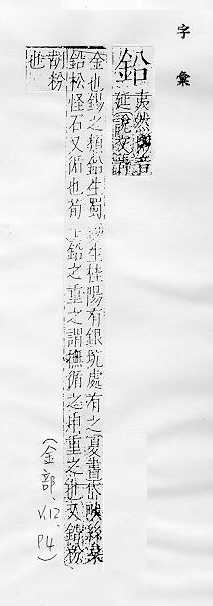 字彙
鉛
夷然切音
延說文青
金也錫之類鉛生蜀又生桂陽有銀坑處有之夏書岱畎絲枲
鉛松怪石又循也荀子鉛之重之謂撫循之申重之也又鉛粉
粉
也
(金部、V.12、P.4)